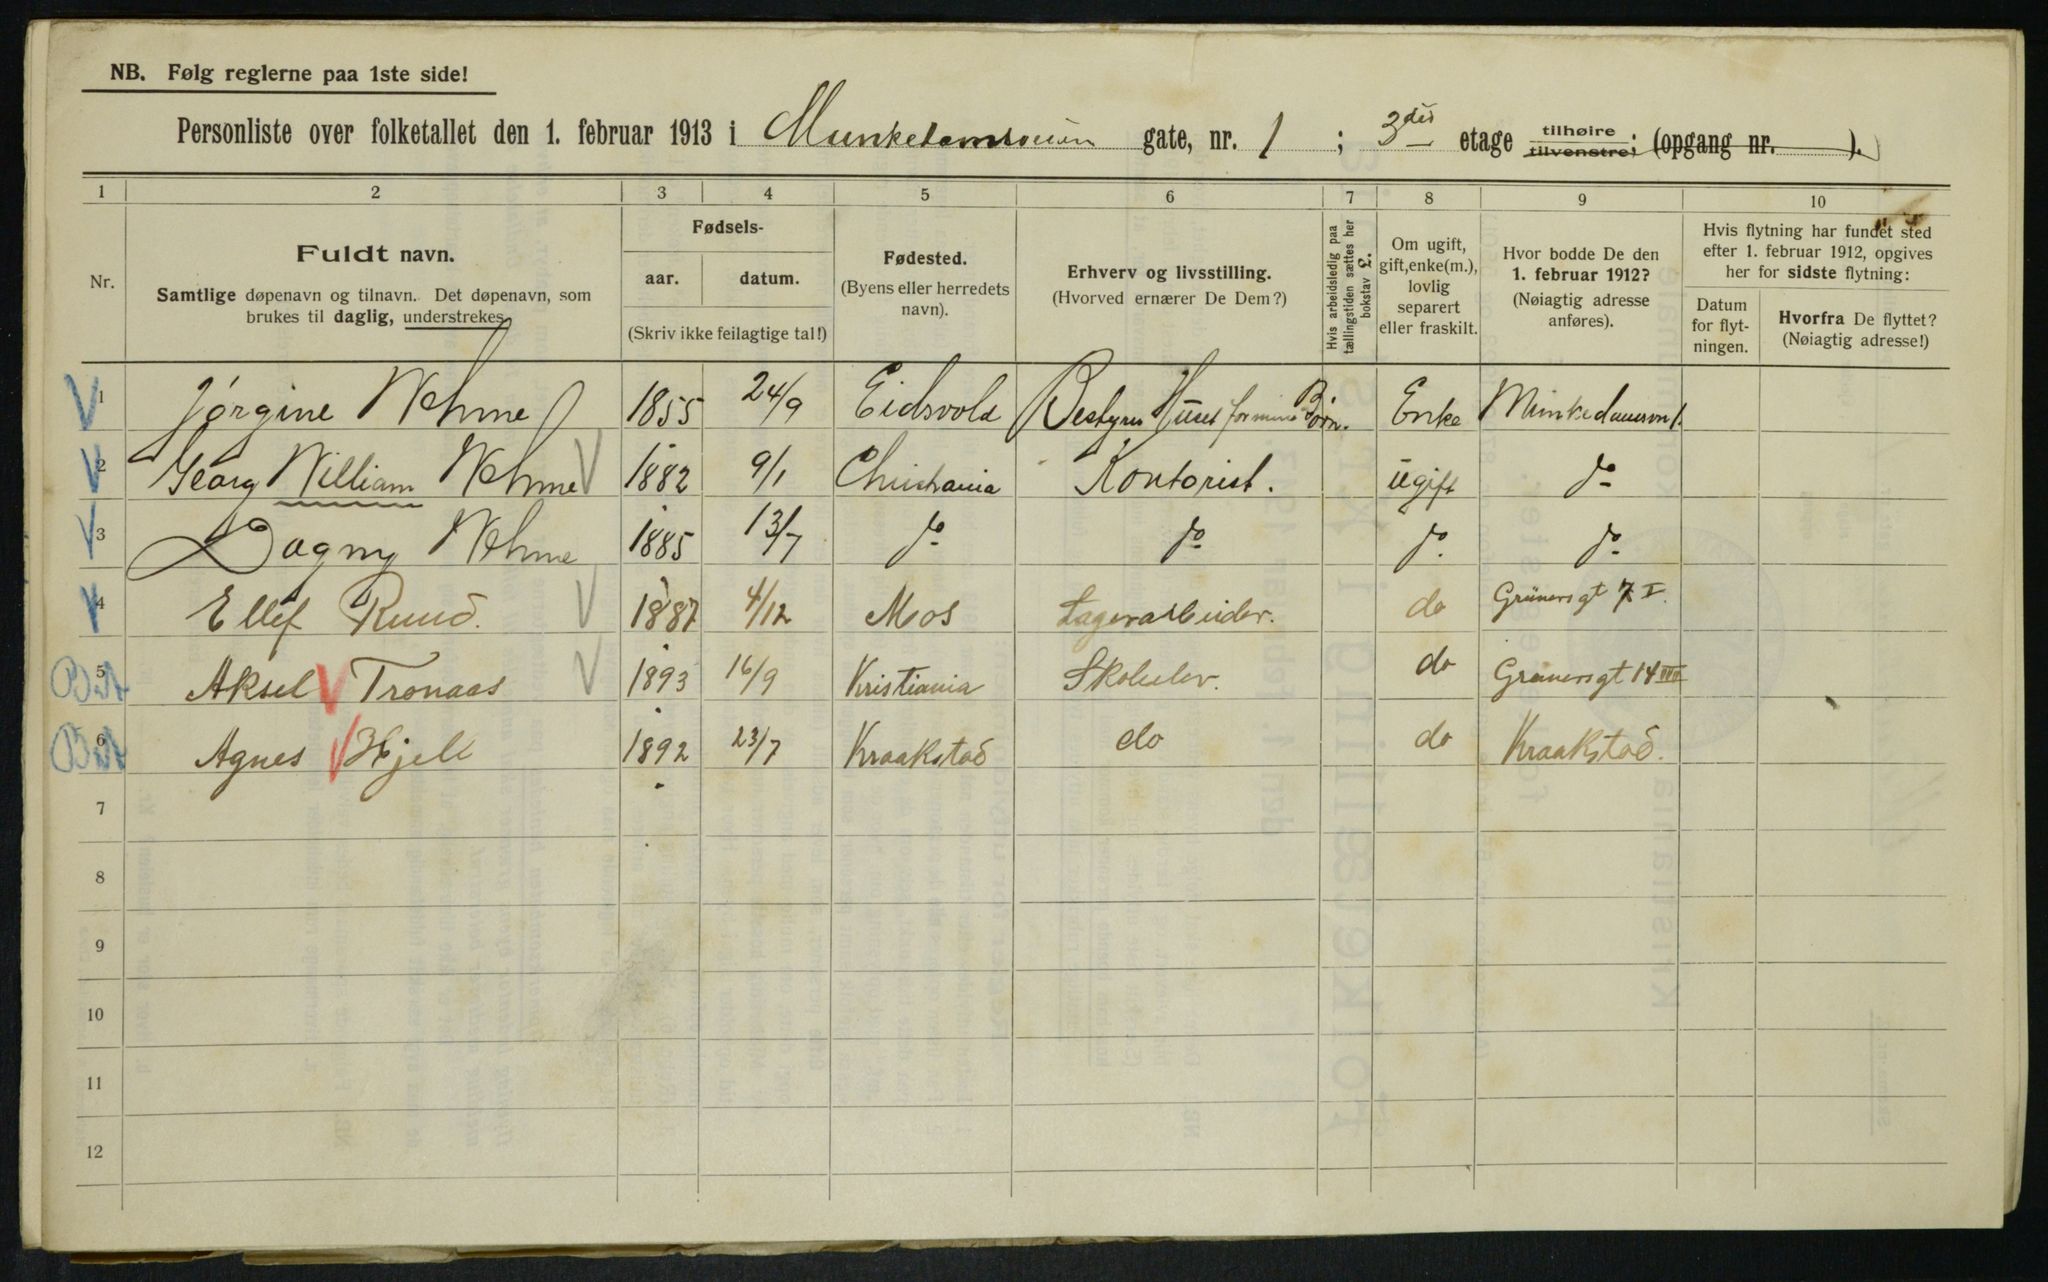 NB. Følg reglerne paa 1ste side!
Personliste over folketallet den 1. februar 1913 i Munkedamsveien gate, nr. 1 ; 3die etage tilhøire tilvenstre; (opgang nr. ).
1 2 3 4 5 6 7 8 9 10
Nr.
Fuldt navn.
Samtlige døpenavn og tilnavn. Det døpenavn, som
brukes til daglig, understrekes.
Fødsels-
aar. datum.
(Skriv ikke feilagtige tal!)
Fødested.
(Byens eller herredets
navn).
Erhverv og livsstilling.
(Hvorved ernærer De Dem?)
Hvis arbeidsledig paa
tællingstiden sættes her
bokstav L.
Om ugift,
gift, enke(m.),
lovlig
separert
eller fraskilt.
Hvor bodde De den
1. februar 1912?
(Nøiagtig adresse
anføres).
Hvis flytning har fundet sted
efter 1. februar 1912, opgives
her for sidste flytning:
Datum
for flyt-
ningen.
Hvorfra De flyttet?
(Nøiagtig adresse!)
1 Jørgine Nehme 1855 24/9 Eidsvold Bestyrer Huset for mine Børn. Enke Munkedamsvn 1.
2 Georg William Nehme 1882 9/1 Christiania Kontorist. ugift do
3 Dagny Nehme 1885 13/7 do do do. do
4 Ellef Ruud. 1887 4/12 Mos Lagerarbeider. do Grünersgt 7 I.
5 Aksel Tronaas 1893 16/9 Kristiania Skoleelev. do Grünersgt 14 III
6 Agnes Hjell 1892 23/7 Kraakstad do do Kraakstad.
7
8
9
10
11
12